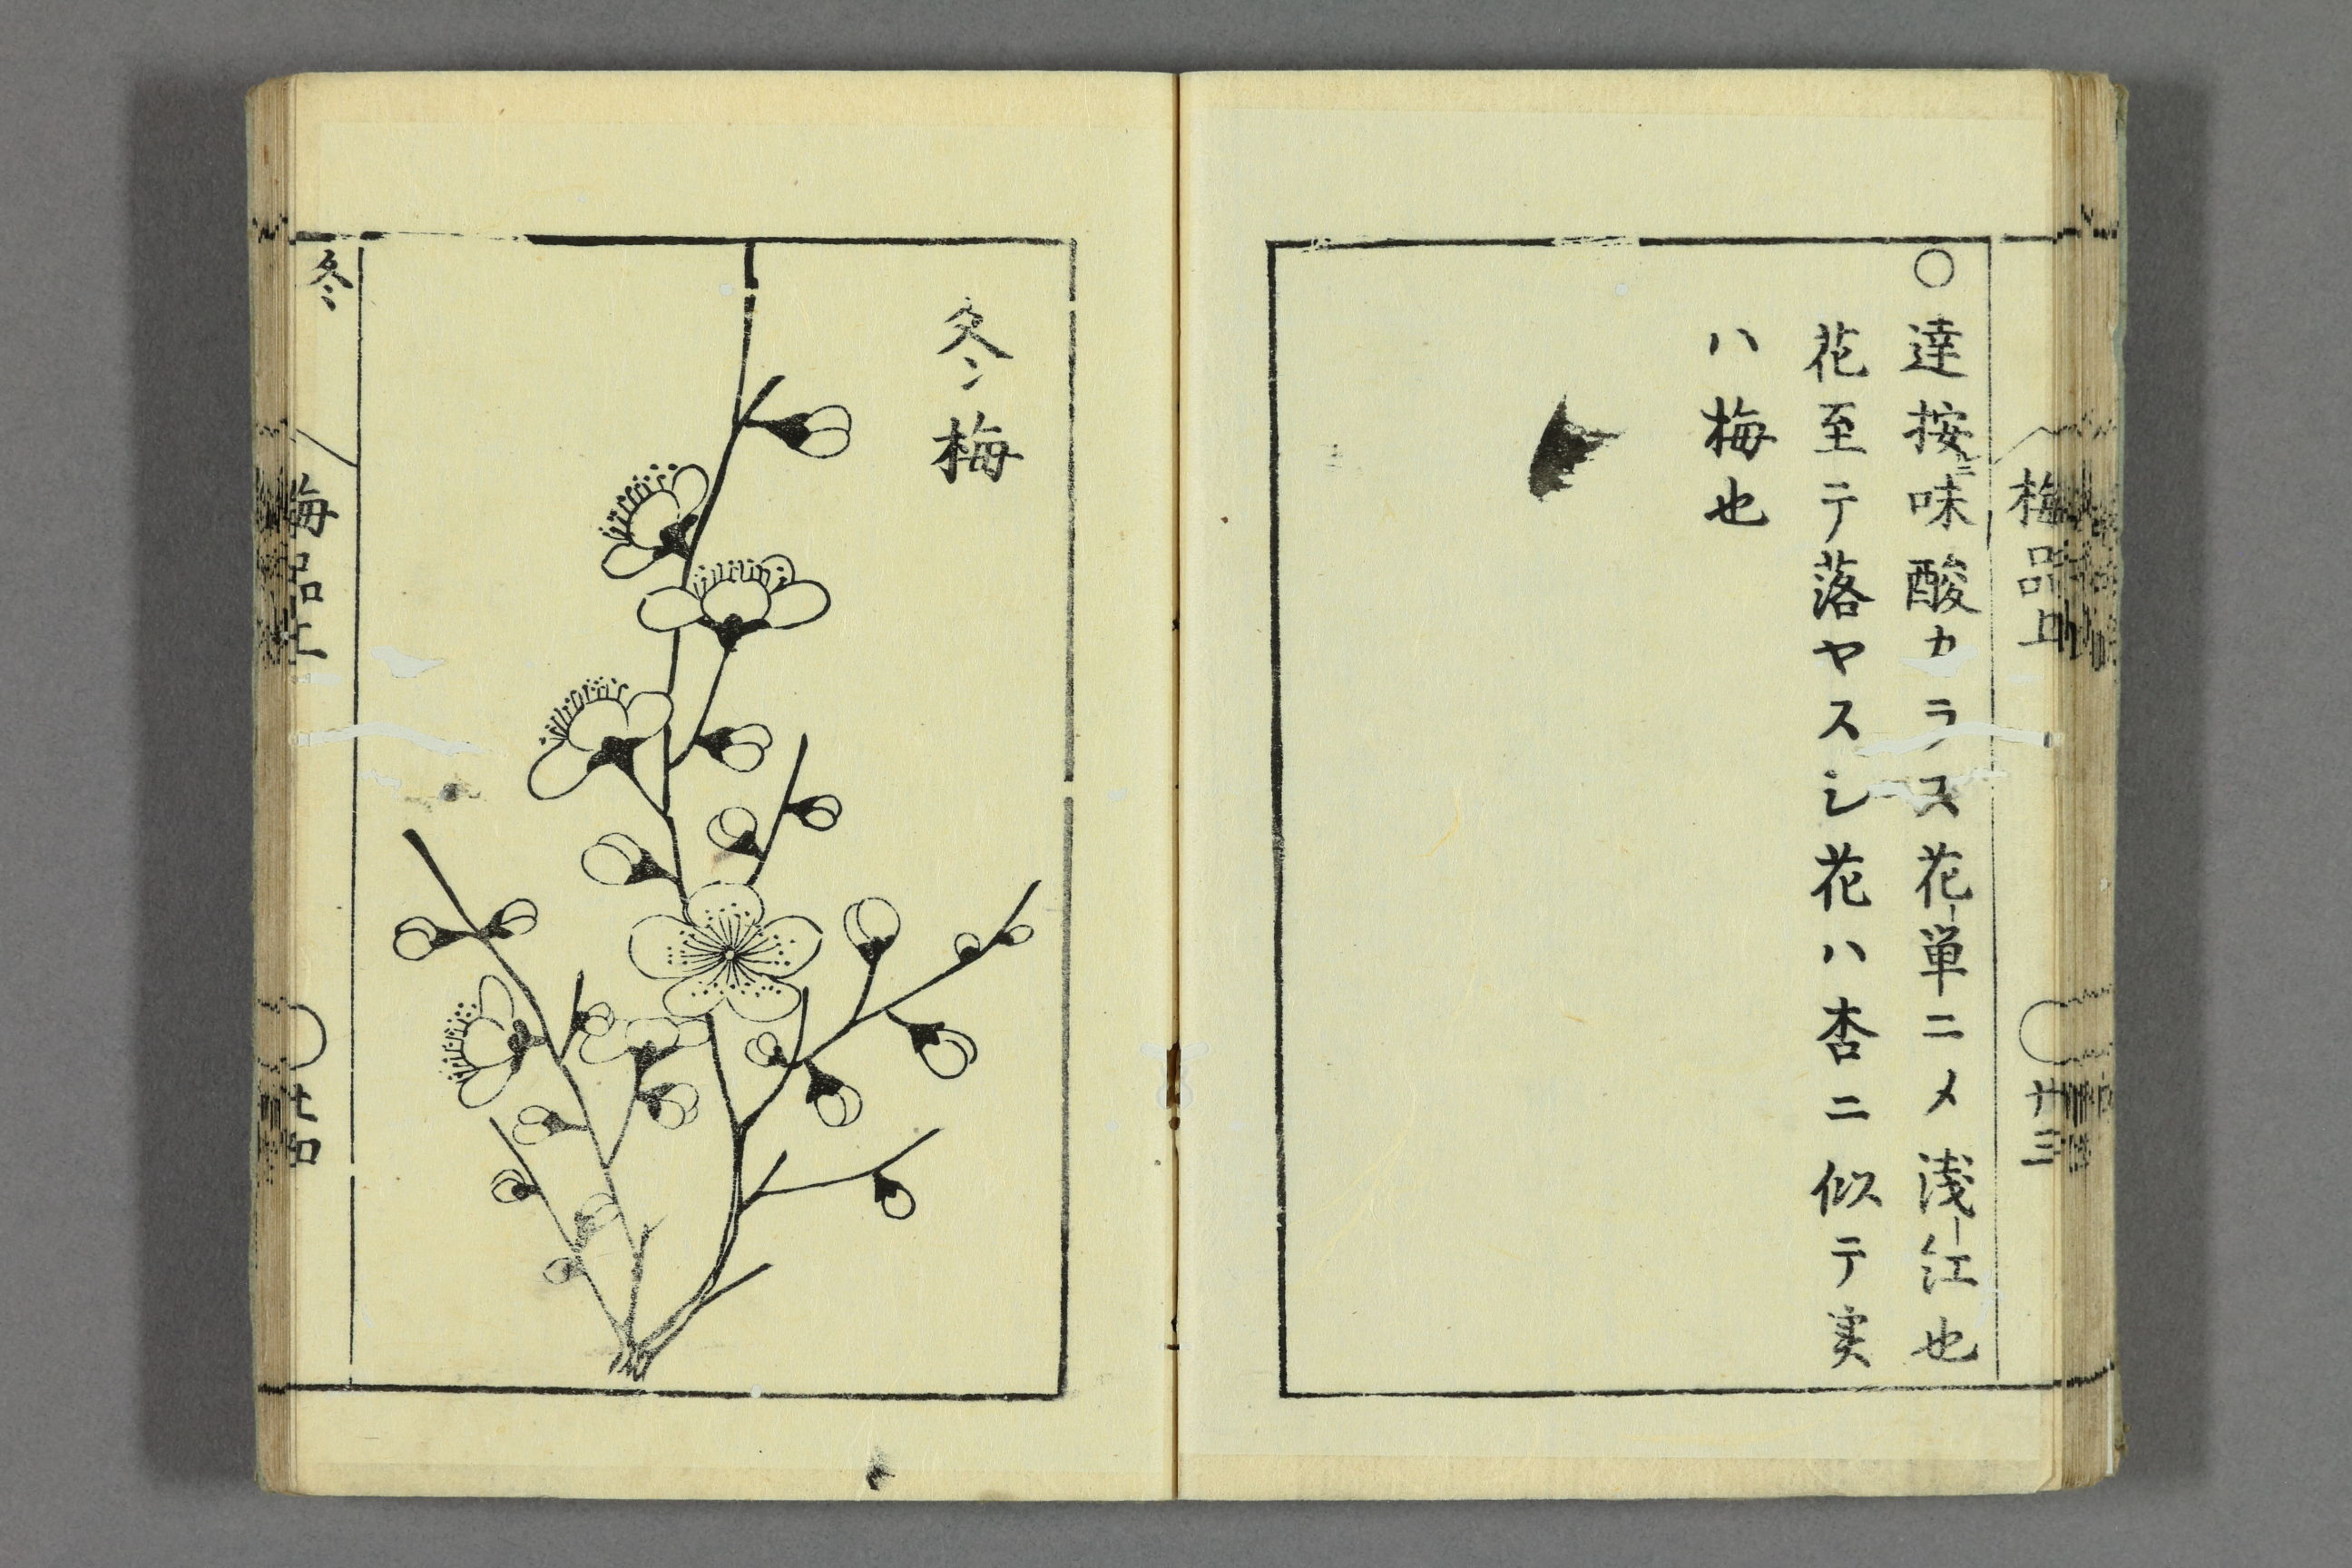 梅品上
廿三
○達按ニ味酸カラス花単ニメ浅江也
花至テ落ヤスシ花ハ杏ニ似テ実
ハ梅也
冬梅
冬
梅品上
廿四